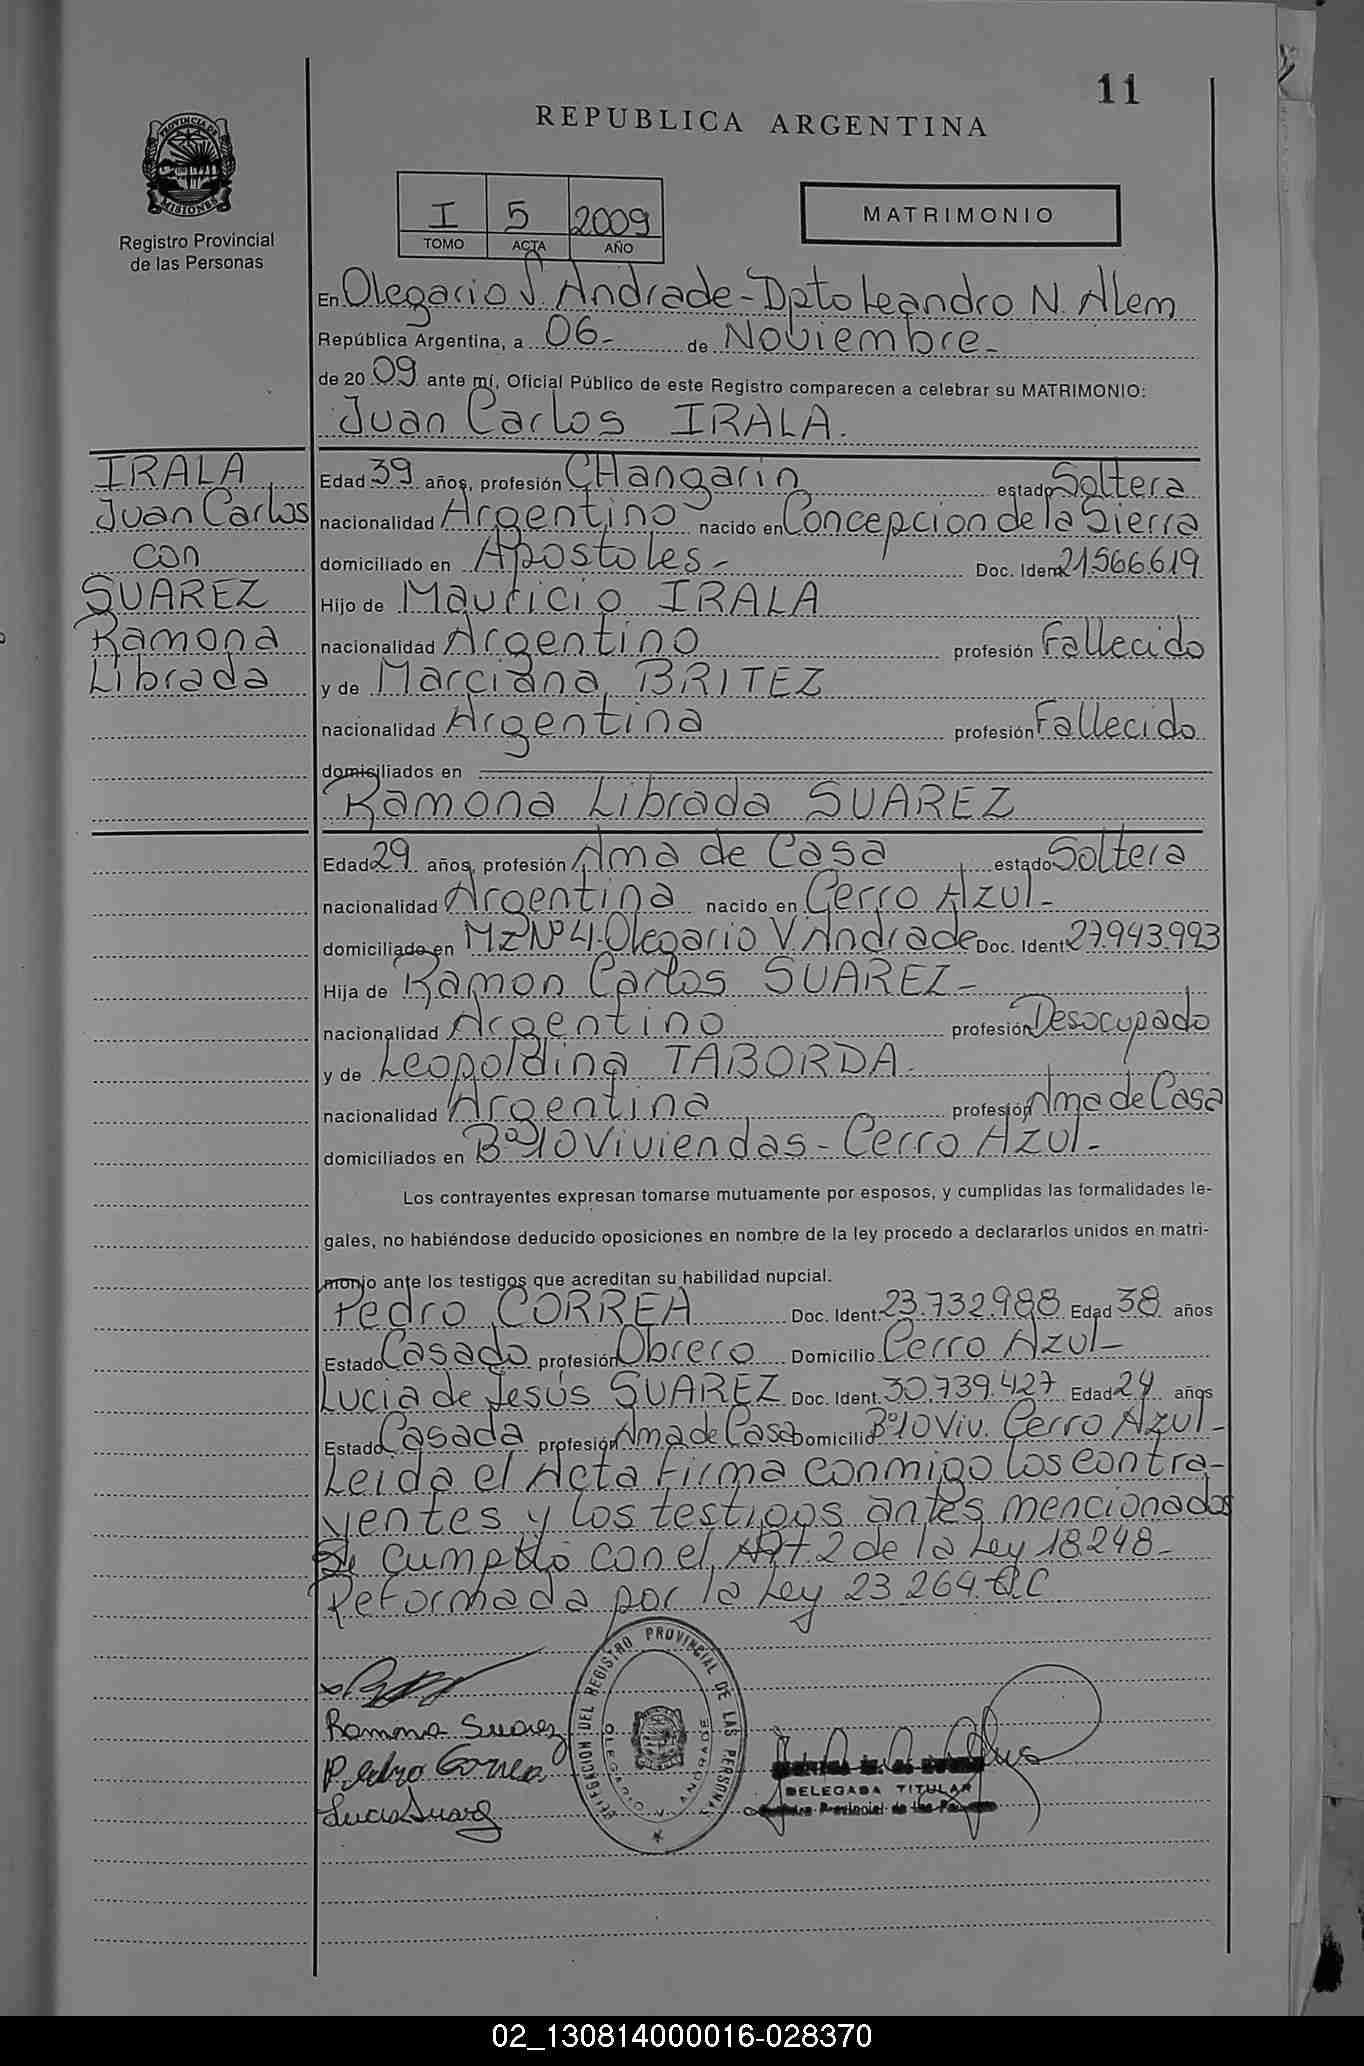 11
REPUBLICA ARGENTINA
PROVINCIA DE
MISIONES
Registro Provincial
de las Personas
I 5 2009
TOMO ACTA AÑO
MATRIMONIO
En Olegario V. Andrade - Dpto Leandro N. Alem
República Argentina, a 06- de Noviembre-
de 20 09 ante mí, Oficial Público de este Registro comparecen a celebrar su MATRIMONIO:
Juan Carlos IRALA.
IRALA
Juan Carlos
con
SUAREZ
Ramona
Librada
Edad 39 años, profesión CHangarin estado Soltera
nacionalidad Argentino nacido en Concepcion de la Sierra
domiciliado en Apostoles- Doc. Ident 21.566.619
Hijo de Mauricio IRALA
nacionalidad Argentino profesión Fallecido
y de Marciana BRITEZ
nacionalidad Argentina profesión Fallecido
domiciliados en
Ramona Librada SUAREZ
Edad 29 años, profesión Ama de Casa estado Soltera
nacionalidad Argentina nacido en Cerro Azul-
domiciliado en MZ Nº 4. Olegario V. Andrade Doc. Ident. 27.943.993
Hija de Ramon Carlos SUAREZ-
nacionalidad Argentino profesión Desocupado
y de Leopoldina TABORDA.
nacionalidad Argentina profesión Ama de Casa
domiciliados en Bº 10 Viviendas - Cerro Azul-
Los contrayentes expresan tomarse mutuamente por esposos, y cumplidas las formalidades le-
gales, no habiéndose deducido oposiciones en nombre de la ley procedo a declararlos unidos en matri-
monio ante los testigos que acreditan su habilidad nupcial.
Pedro CORREA Doc. Ident. 23.732.988 Edad 38 años
Estado Casado profesión Obrero Domicilio Cerro Azul-
Lucia de Jesús SUAREZ Doc. Ident. 30.739.427 Edad 24 años
Estado Casada profesión Ama de Casa Domicilio Bº 10 Viv. Cerro Azul-
Leida el Acta firma conmigo los contra-
yentes y los testigos antes mencionados
Se cumplio con el Art. 2 de la Ley 18.248-
Reformada por la Ley 23.264.
Ramona Suarez
Pedro Correa
Lucia Suarez
DELEGACION DEL REGISTRO PROVINCIAL DE LAS PERSONAS
OLEGARIO V. ANDRADE
DELEGADA TITULAR
Provincial de las
02_130814000016-028370